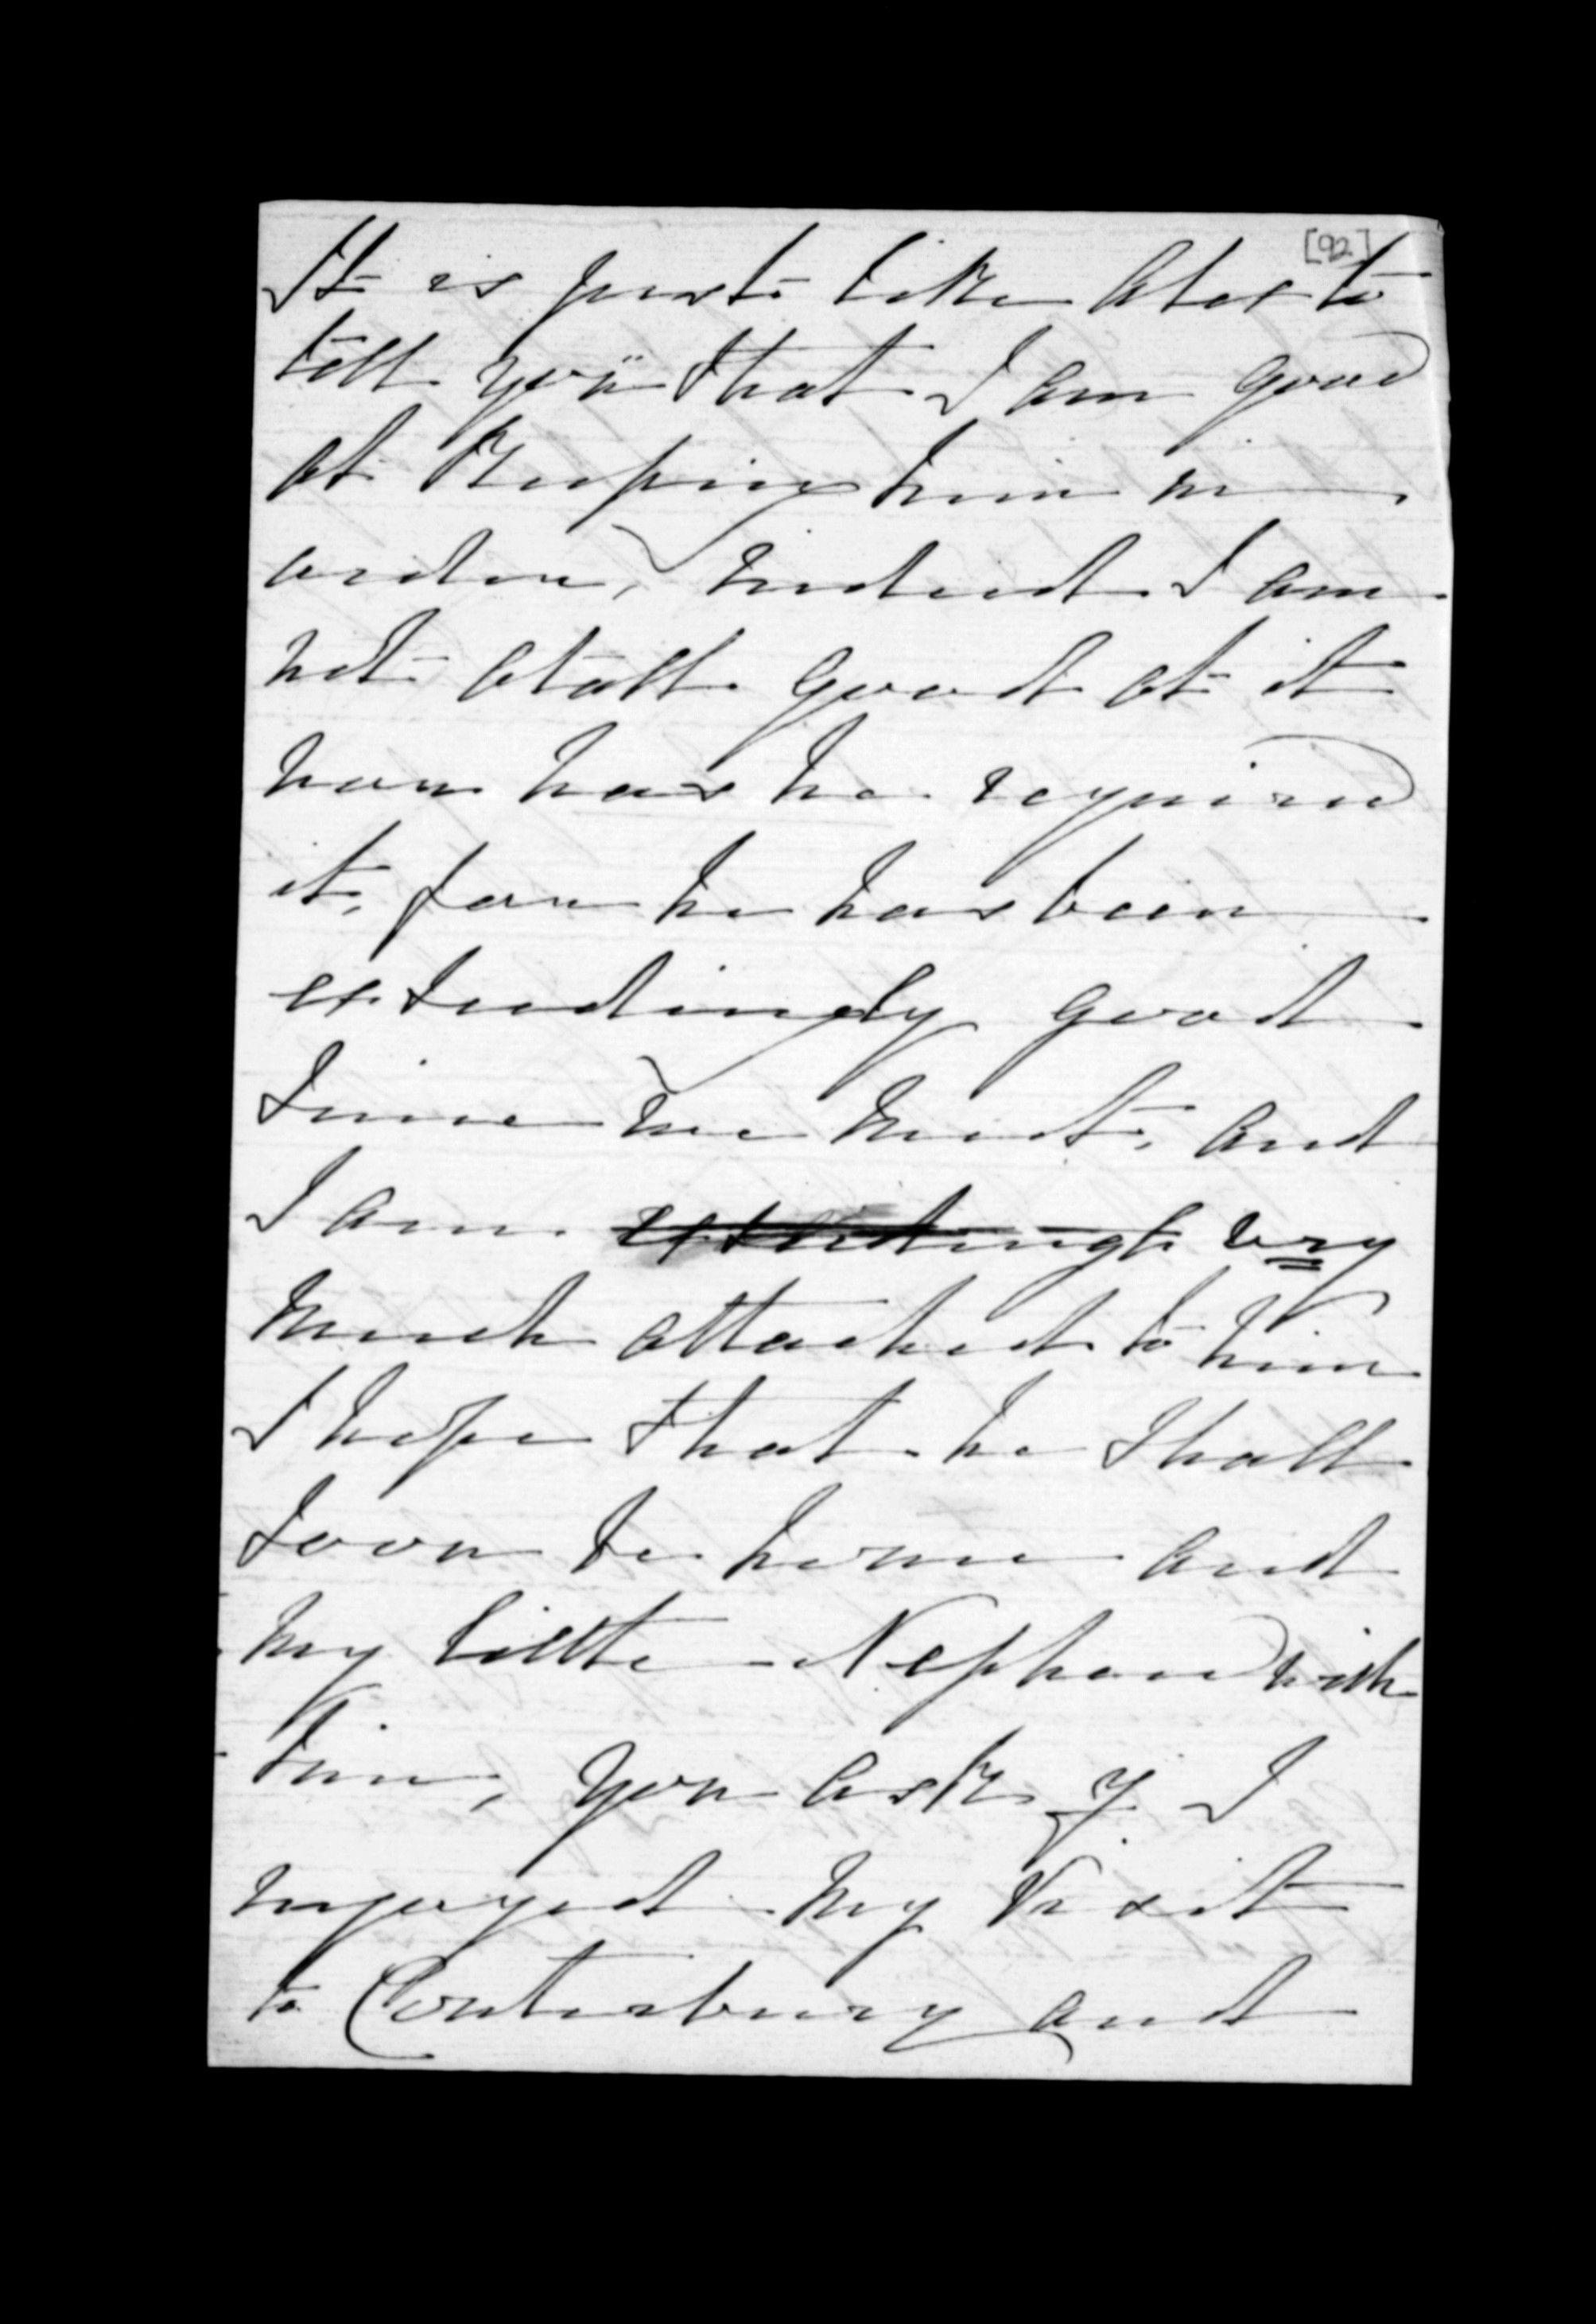 [92]
It is just like Alex to
tell you that I am good
at keeping him in
order, indeed I am
not atall good at it
nor has he required
it, for he has been
extreedingly good
since we meet, and
I am extreedingly very
much attached to him
I hope that he shall
soon be home and
my little Nephew with
him, you ask if I
enjoyed my visit
to Canterbury and